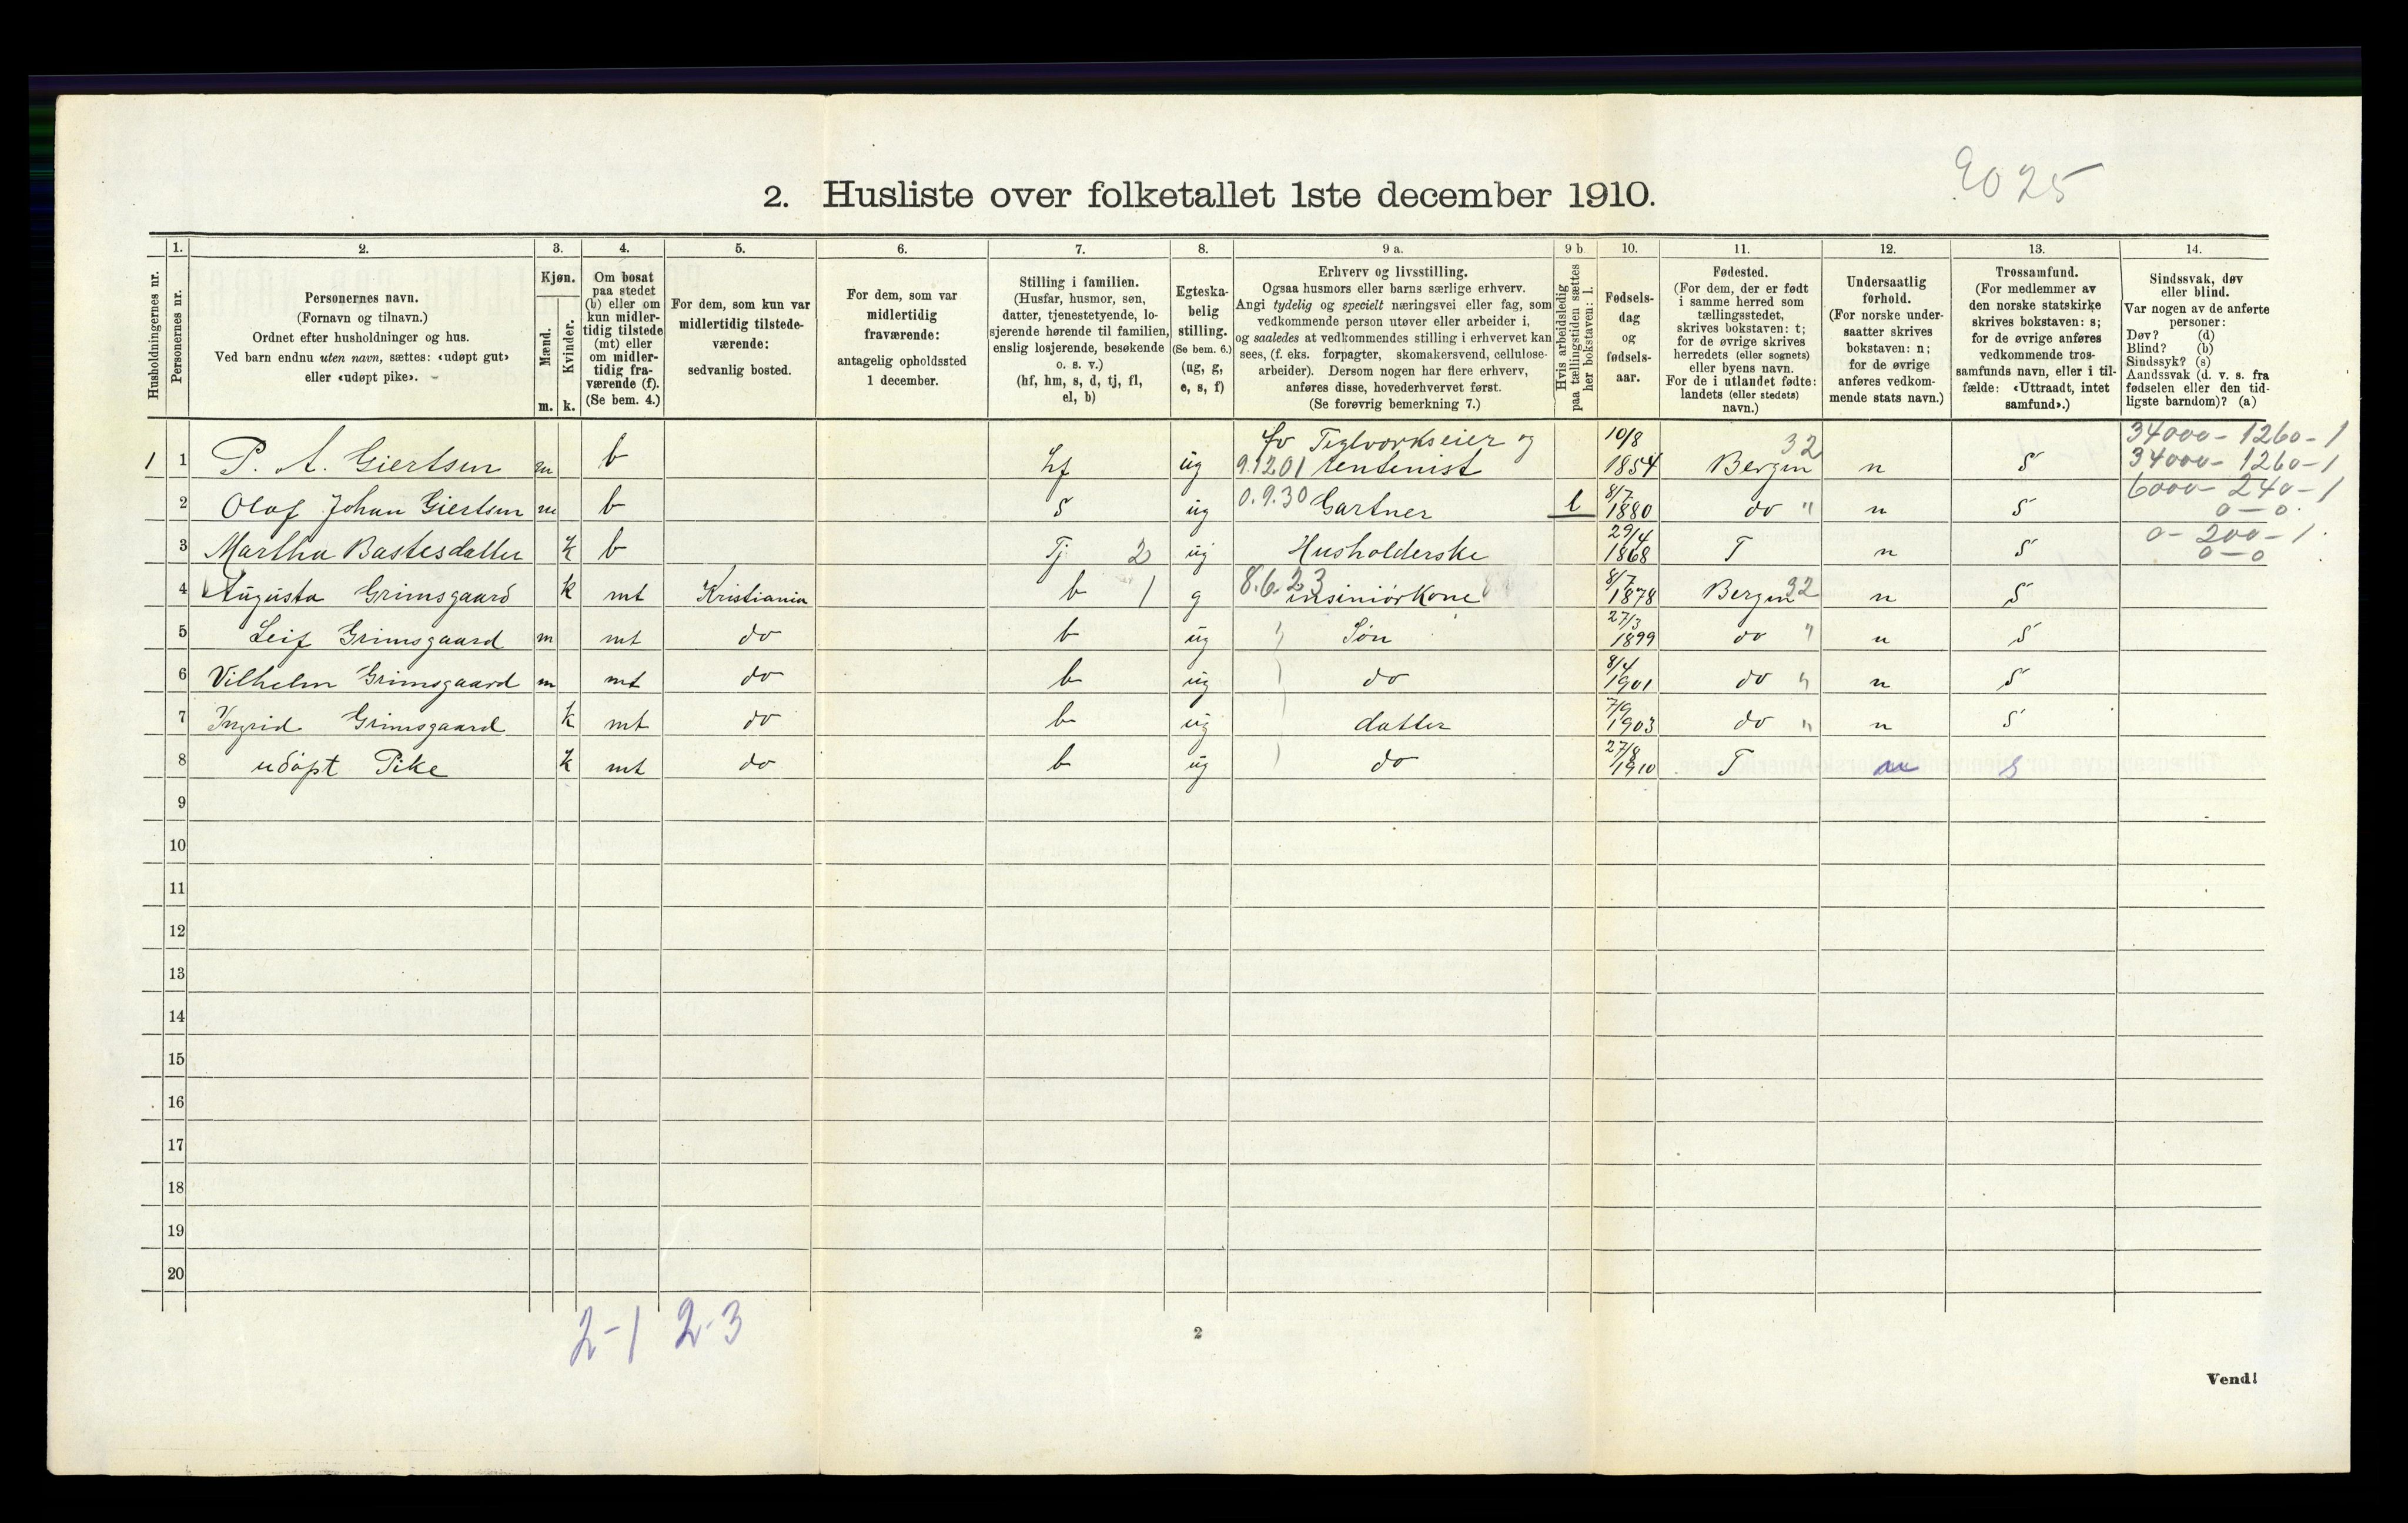 9025
2. Husliste over folketallet 1ste december 1910.
Husholdningernes nr.
1.
Personernes nr.
2.
Personernes navn.
(Fornavn og tilnavn.)
Ordnet efter husholdninger og hus.
Ved barn endnu uten navn, sættes: «udøpt gut»
eller «udøpt pike».
3.
Kjøn.
Mænd.
Kvinder.
m. k.
4.
Om bosat
paa stedet
(b) eller om
kun midler-
tidig tilstede
(mt) eller
om midler-
tidig fra-
værende (f).
(Se bem. 4.)
5.
For dem, som kun var
midlertidig tilstede-
værende:
sedvanlig bosted.
6.
For dem, som var
midlertidig
fraværende:
antagelig opholdssted
1 december.
7.
Stilling i familien.
(Husfar, husmor, søn,
datter, tjenestetyende, lo-
sjerende hørende til familien,
enslig losjerende, besøkende
o. s. v.)
(hf, hm, s, d, tj, fl,
el, b)
8.
Egteska-
belig
stilling.
(Se bem. 6.)
(ug, g,
e, s, f)
9 a.
Erhverv og livsstilling.
Ogsaa husmors eller barns særlige erhverv.
Angi tydelig og specielt næringsvei eller fag, som
vedkommende person utøver eller arbeider i,
og saaledes at vedkommendes stilling i erhvervet kan
sees, (f. eks. forpagter, skomakersvend, cellulose-
arbeider). Dersom nogen har flere erhverv,
anføres disse, hovederhvervet først.
(Se forøvrig bemerkning 7.)
9 b
Hvis arbeidsledig
paa tællingstiden sættes
her bokstaven: l.
10.
Fødsels-
dag
og
fødsels-
aar.
11.
Fødested.
(For dem, der er født
i samme herred som
tællingsstedet,
skrives bokstaven: t;
for de øvrige skrives
herredets (eller sognets)
eller byens navn.
For de i utlandet fødte:
landets (eller stedets)
navn.)
12.
Undersaatlig
forhold.
(For norske under-
saatter skrives
bokstaven: n;
for de øvrige
anføres vedkom-
mende stats navn.)
13.
Trossamfund.
(For medlemmer av
den norske statskirke
skrives bokstaven: s;
for de øvrige anføres
vedkommende tros-
samfunds navn, eller i til-
fælde: «Uttraadt, intet
samfund».)
14.
Sindssvak, døv
eller blind.
Var nogen av de anførte
personer:
Døv? (d)
Blind? (b)
Sindssyk? (s)
Aandssvak (d. v. s. fra
fødselen eller den tid-
ligste barndom)? (a)
1 1 P. A. Giertsen m b hf ug fv Teglværkseier og 9.1201 rentenist 10/8 1854 Bergen 32 n S 34000 - 1260 - 1 34000 - 1260 - 1
2 Olaf Johan Giertsen m b s ug 0.9.30 Gartner l 8/7 1880 do " n S 6000 - 240 - 1 0 - 0
3 Martha Bastesdatter k b Tj 2 ug Husholderske 29/4 1868 T n S 0 - 200 - 1 0 - 0
4 Augusta Grimsgaard k mt Kristiania b 1 g 8.6.23 insiniörkone 8/7 1878 Bergen 32 n S
5 Leif Grimsgaard m mt do b ug " Søn 27/3 1899 do " n S
6 Vilhelm Grimsgaard m mt do b ug do 8/4 1901 do " n S
7 Ingrid Grimsgaard k mt do b ug datter 7/9 1903 do " n S
8 udöpt Pike k mt do b ug do 27/8 1910 T n s
9
10
11
12
13
14
15
16
17
18
19
20
2-1 2-3
2
Vend!